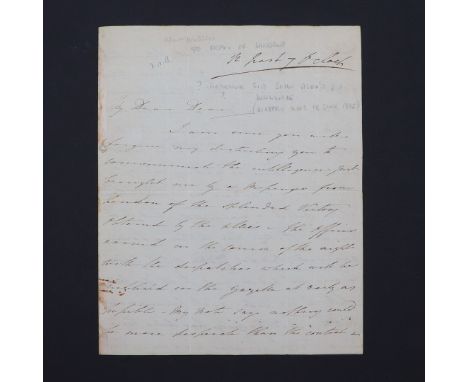 TO DEAN OF WINDSOR
½ past 7 o'clock
My Dear Dean
I am sure you will
forgive my disturbing you to
communicate the intelligence just
brought me by a Messenger from
London of the splendid Victory
obtained by the allies - the officer
arrived in the course of the night
with the despatches which will be
published in the Gazette as early as
possible - My note says nothing could
be more desperate than the contest on